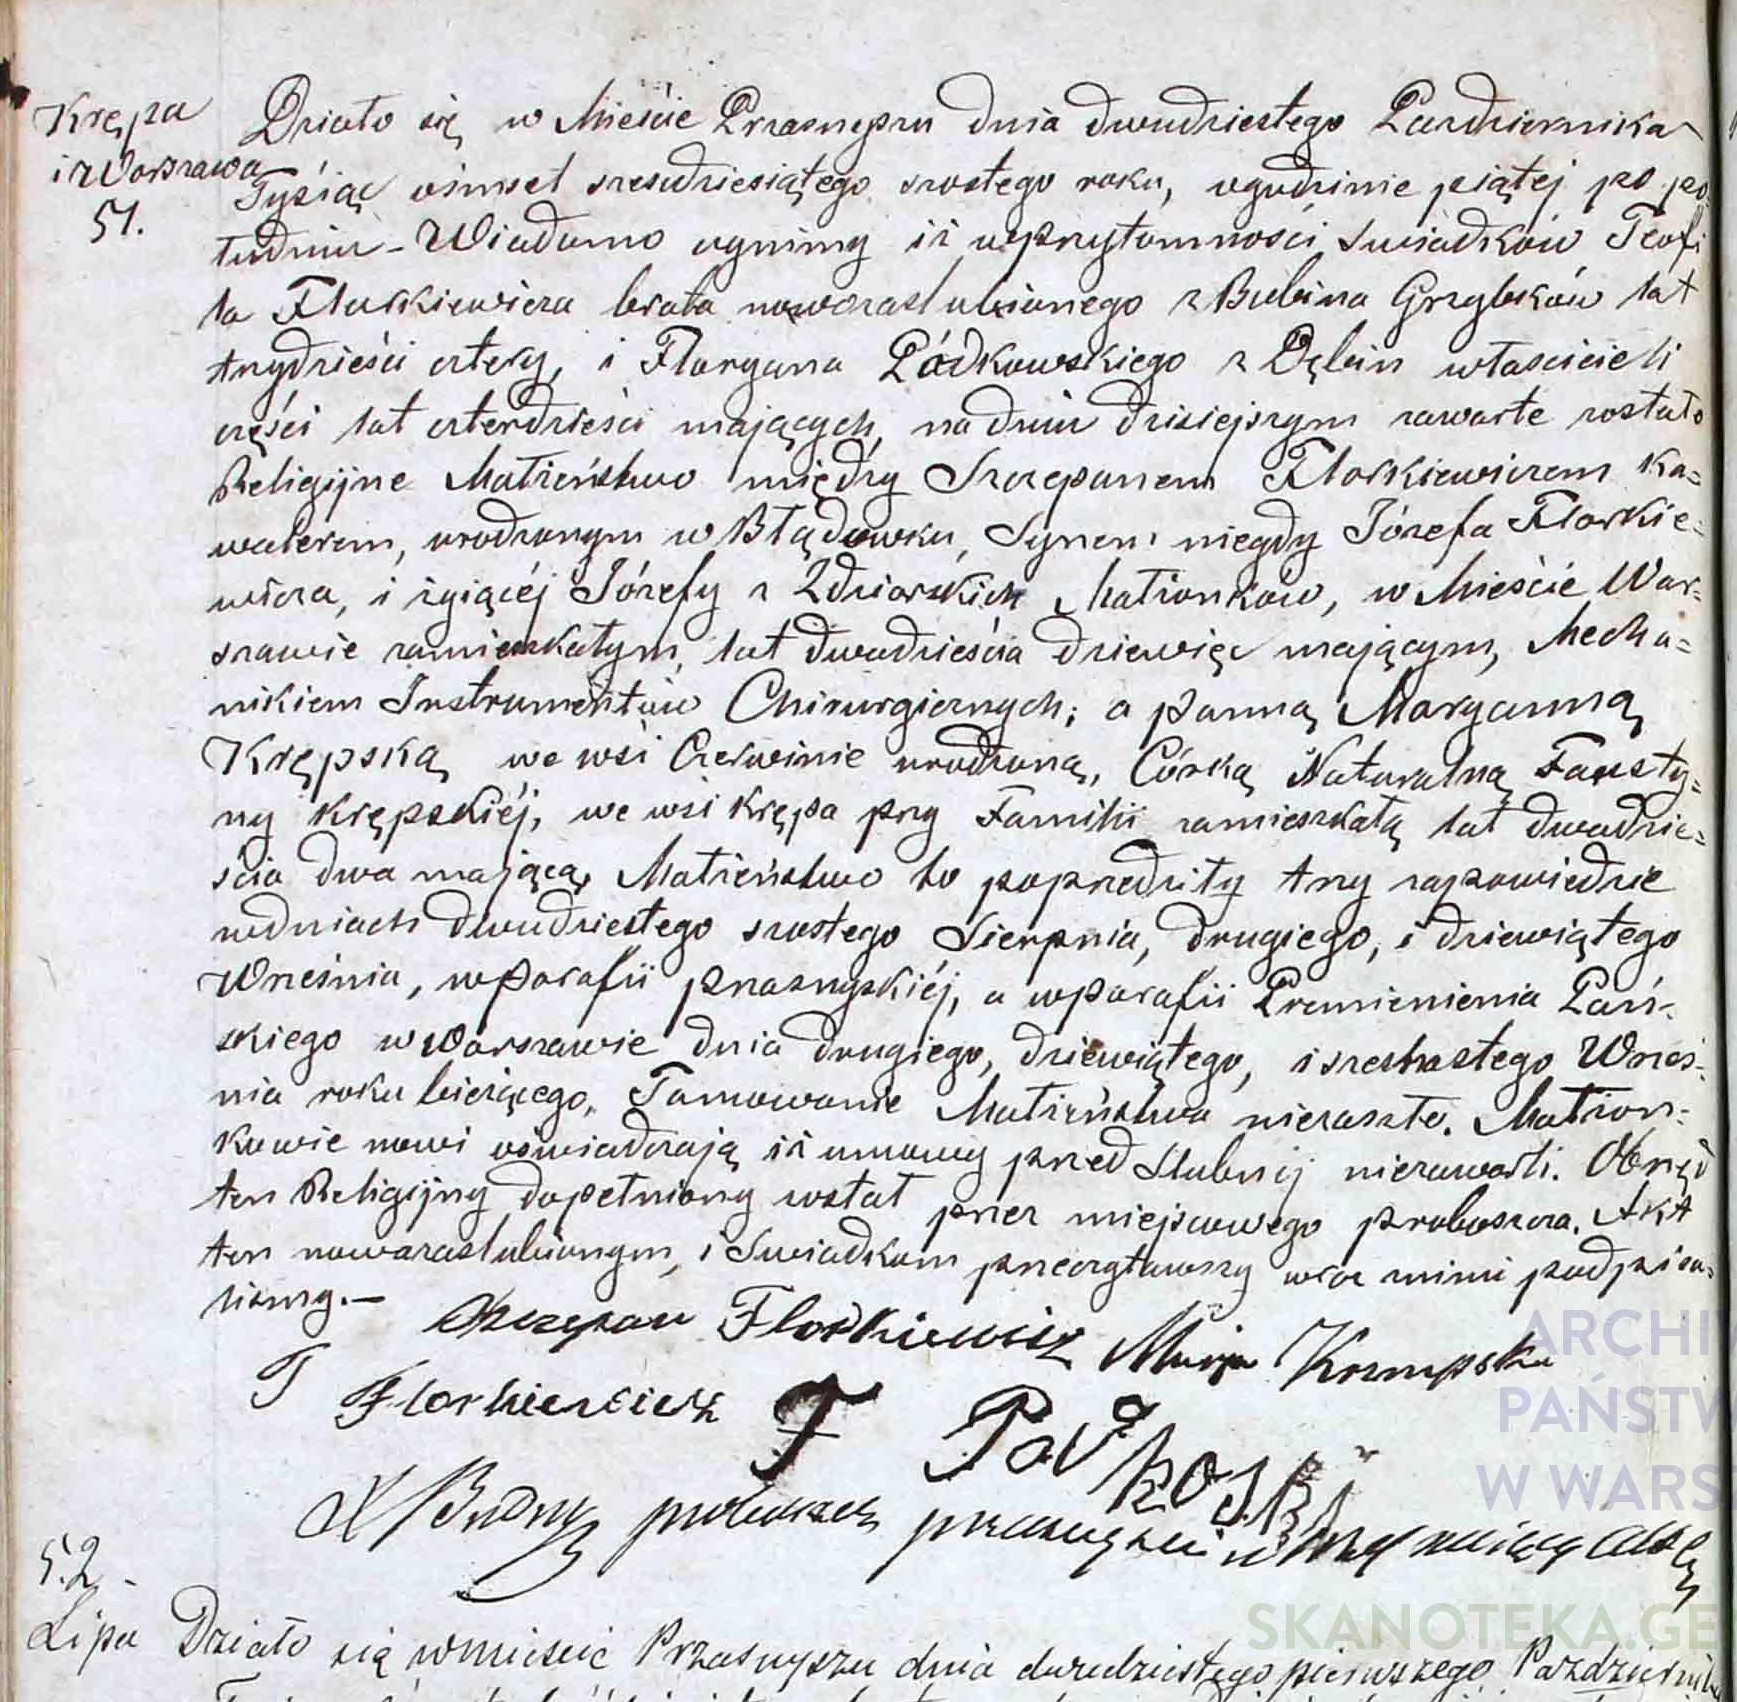 Krępa
i Warszawa
51.
Działo się w Mieście Przasnyszu dnia dwudziestego Pazdziernika
Tysiąc ośmset szesdziesiątego szostego roku, ogodzinie piątej po po-
łudniu - Wiadomo czynimy iż wprzytomności Swiadków Teofi
la Florkiewicza brata nowozaslubionego z Bubina Grzybków lat
trzydzieści cztery, i Floryana Pódkowskiego z Dębin właścicieli
części lat czterdzieści mających, na dniu dzisiejszym zawarte zostało
Religijne Małżeństwo między Szczepanem Florkiewiczem Ka=
walerem, urodzonym w Błędowku, Synem niegdy Józefa Florkie=
wicza, i żyiącéj Józefy z Zdziarskich Małżonków, w Mieście War=
szawie zamieszkałym, lat dwadzieścia dziewięc mającym, Mecha=
nikiem Instrumentów Chirurgicznych; a panną Maryanną
Krępską we wsi Czerwinie urodzoną, Córką Naturalną Fausty=
ny Krępskiéj, we wsi Krępa przy Familii zamieszkałą lat dwadzie=
ścia dwa mającą, Małżeństwo to poprzedziły trzy zapowiedzie
wdniach dwudziestego szostego Sierpnia, drugiego, i dziewiątego
Września, wparafii przasnyskiéj, a wparafii Przemienienia Pań-
skiego w Warszawie dnia drugiego, dziewiątego, i szesnastego Wrześ-
nia roku bieżącego, Tamowanie Małżeństwa niezaszło. Małżon-
kowie nowi oświadczają iż umowy przed Slubnej niezawarli. Obrzęd
ten Religijny dopełniony został przez miejscowego proboszcza. Akt
ten nowozaslubionym, i Swiadkom przeczytawszy wraz znimi podpisa-
lismy.—
Szczepan Florkiewicz Marja Krempska
T Florkiewicz F Potkoski
X Budny proboszcz przasnyski utrzymuiący Akta
52 -
Lipa Działo się wmieście Przasnyszu dnia dwudziestego pierwszego Pazdziernik
ARCHIW
PAŃSTW
W WARS
SKANOTEKA.GE